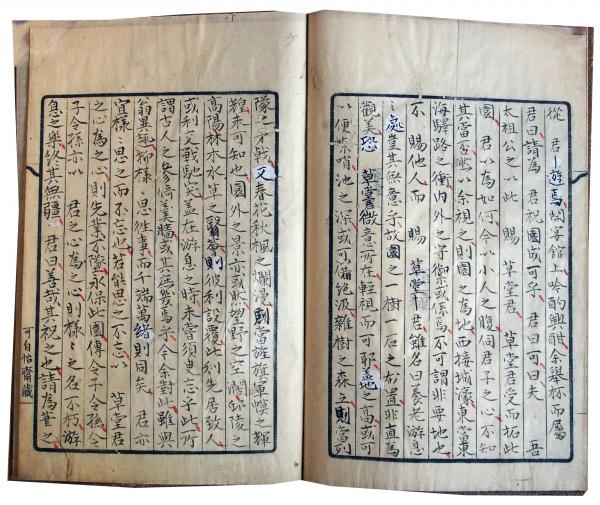 從　君一遊焉開宴館上吟酌興酣余舉杯而屬
君曰請為　君祝國成可乎　君曰可曰夫　吾
太祖公之以此　賜　草堂君　草堂君受而拓此
園　君以為如何今以小人之腹伺君子之心不知
其當否然以余視之則園之為地西接城濠東當東
海驛路之衝内外之守禦或係焉不可謂非要地也
不　賜他人而　賜　草堂君雖名曰養老游息
之處豈其無意乎故園之一樹一石之布置非直為
觀美恐　草堂微意所在輕視而可耶盖地之高或可
以便哨池之深或可備絶汲雜樹之森立則當列
隊之矛戟又春花秋楓之爛漫則當旌旗軍幔之輝
煌未可知也園外之景亦或眺望野之空闊
高陽林木水草之翳薈則彼利設覆此利先居致人
或利交戰馳突盖在游息之時未嘗須臾忘乎此所
謂古人　羹牆或其為幾焉乎今余對此雖與
翁異宜抑様　思往事而一端萬緒則同矣　君亦
宜様　思之而不忘也若能思之不忘以　草堂君
之心為之心則先業不墜永保此園傳令子令孫令
子令孫亦以　君之心為之心則様　之名不朽游
息之樂終其無疆　君曰善哉其祝之也請為葉之
可自怡齋藏